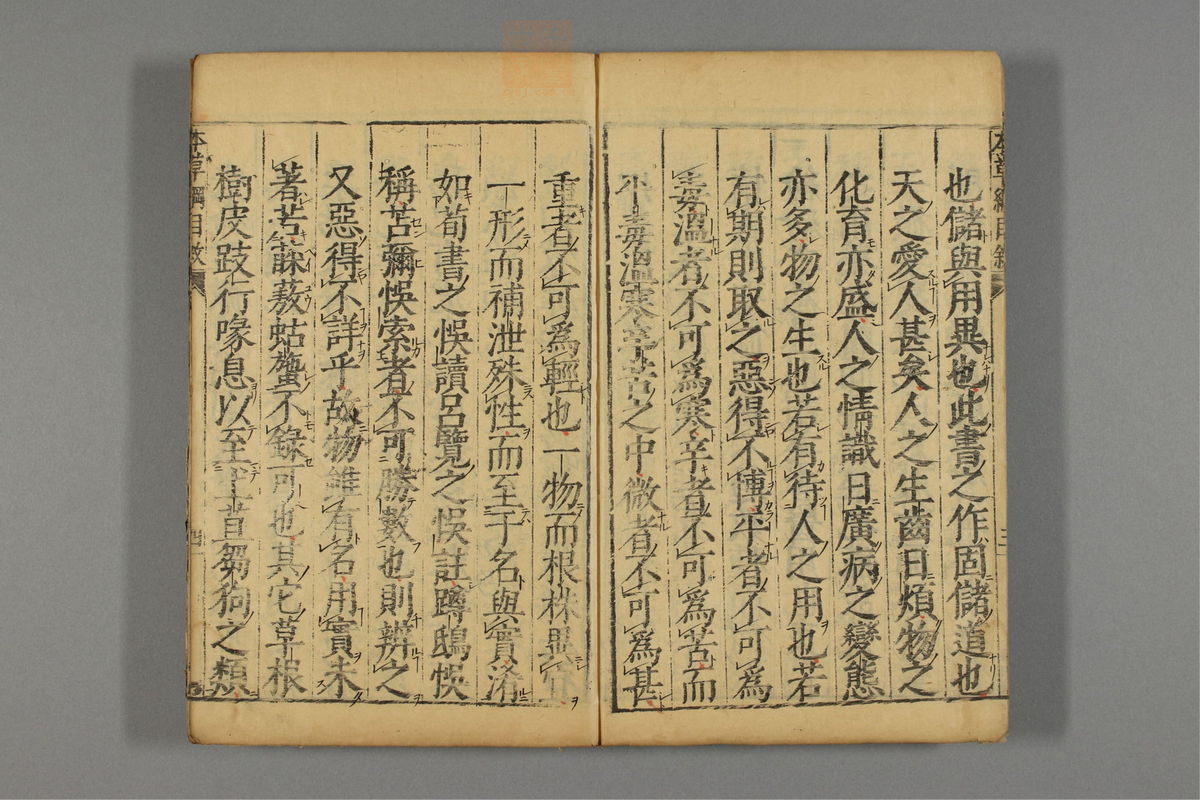 也儲與用異也此書之作固儲道也
天之愛人甚矣人之生齒日煩物之
化育亦盛人之情識日廣病之變態
亦多物之生也若有待人之用也若
有期則取之惡得不博乎者不可為
毒溫者不可為寒辛者不可為苦而
不毒溫寒辛苦之中微者不可為甚
重者不可為輕也一物而根株異
一形而補泄殊性而至于名與實淆
如荀書之悞讀呂覽之悞註蹲鴟悞
稱苦彌悞索者不可勝數也則辨之
又惡得不詳乎故物雖有名用實未
著苦蔴蔜蛄䗪不錄可也其它草根
樹皮跂行喙息以至芻狗之類